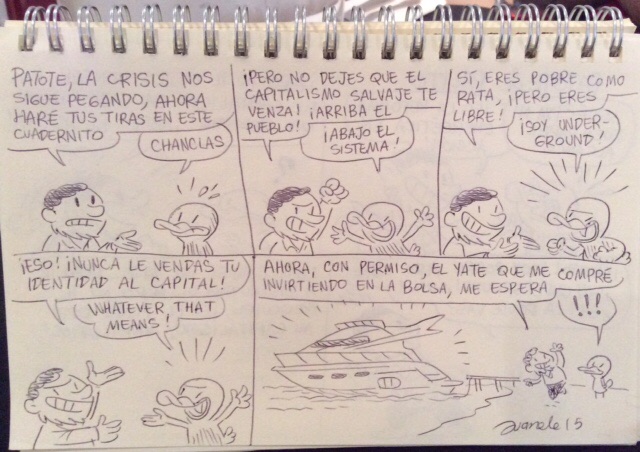 PATOTE, LA CRISIS NOS
SIGUE PEGANDO, AHORA
HARÉ TUS TIRAS EN ESTE
CUADERNITO
CHANCLAS
¡PERO NO DEJES QUE EL
CAPITALISMO SALVAJE TE
VENZA! ¡ARRIBA EL
PUEBLO!
¡ABAJO EL
SISTEMA!
SÍ, ERES POBRE COMO
RATA, ¡PERO ERES
LIBRE!
¡SOY UNDER-
GROUND!
¡ESO! ¡NUNCA LE VENDAS TU
IDENTIDAD AL CAPITAL!
WHATEVER THAT
MEANS!
AHORA, CON PERMISO, EL YATE QUE ME COMPRÉ
INVIRTIENDO EN LA BOLSA, ME ESPERA
!!!
Juanele 15